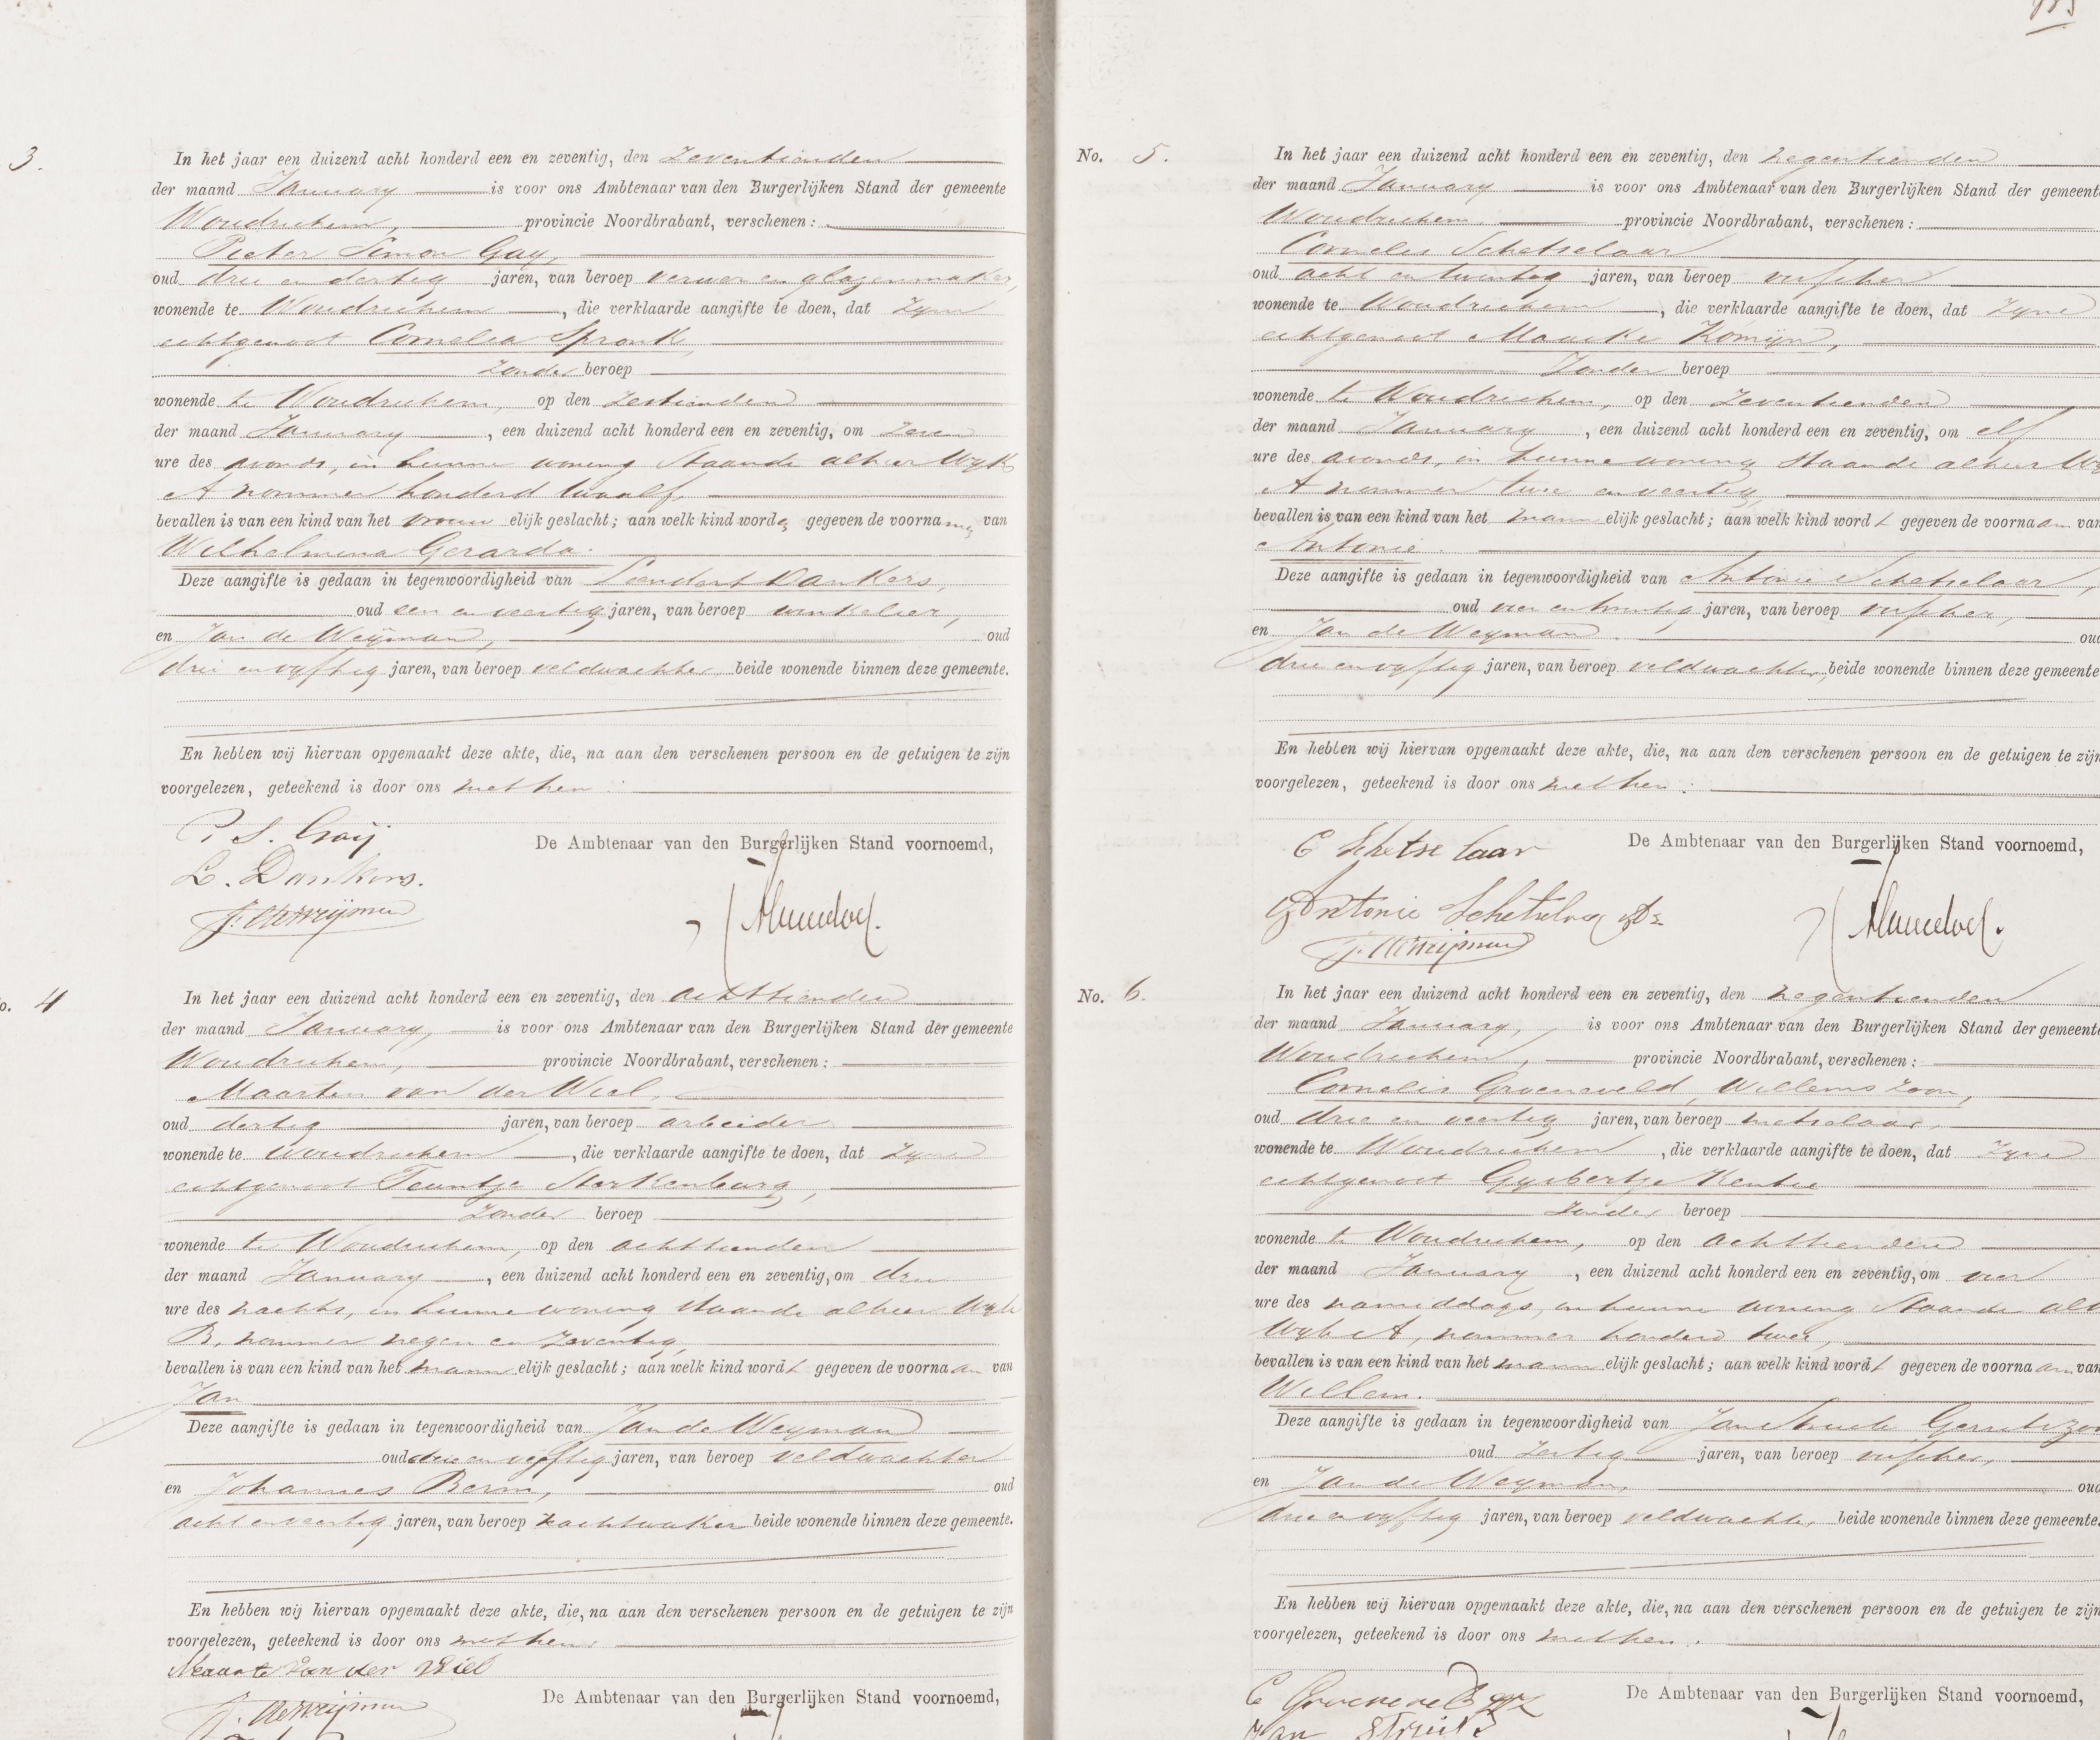 3.
In het jaar een duizend acht honderd een en zeventig, den zeventienden
der maand January is voor ons Ambtenaar van den Burgerlijken Stand der gemeente
Woudrichem, provincie Noordbrabant, verschenen:
Pieter Simon Gay,
oud drie en dertig jaren, van beroep verwer en glazenmaker,
wonende te Woudrichem, die verklaarde aangifte te doen, dat zyne
echtgenoot Cornelia Spronk,
zonder beroep
wonende te Woudrichem, op den zestienden
der maand January, een duizend acht honderd een en zeventig, om zeven
ure des avonds, in hunne woning staande alhier Wyk
A nommer honderd twaalf,
bevallen is van een kind van het vrouwelijk geslacht; aan welk kind worden gegeven de voornamen van
Wilhelmina Gerarda.
Deze aangifte is gedaan in tegenwoordigheid van Leendert Dankers,
oud een en veertig jaren, van beroep winkelier,
en Jan de Weyman, oud
drie en vyftig jaren, van beroep veldwachter beide wonende binnen deze gemeente.
En hebben wij hiervan opgemaakt deze akte, die, na aan den verschenen persoon en de getuigen te zijn
voorgelezen, geteekend is door ons met hen.
P. S. Gaij
De Ambtenaar van den Burgerlijken Stand voornoemd,
L. Dankers.
J. de Weijman
o. 4
In het jaar een duizend acht honderd een en zeventig, den achttienden
der maand January, is voor ons Ambtenaar van den Burgerlijken Stand der gemeente
Woudrichem, provincie Noordbrabant, verschenen:
Maarten van der Wiel,
oud dertig jaren, van beroep arbeider
wonende te Woudrichem, die verklaarde aangifte te doen, dat zyne
echtgenoot Teuntje Sterkenburg,
zonder beroep
wonende te Woudrichem, op den achttienden
der maand January, een duizend acht honderd een en zeventig, om drie
ure des nachts, in hunne woning staande alhier Wyk
B, nommer negen en zeventig,
bevallen is van een kind van het mannelijk geslacht; aan welk kind wordt gegeven de voornaam van
Jan
Deze aangifte is gedaan in tegenwoordigheid van Jan de Weyman
oud drie en vyftig jaren, van beroep veldwachter
en Johannes Berm, oud
acht en veertig jaren, van beroep nachtwaker beide wonende binnen deze gemeente.
En hebben wij hiervan opgemaakt deze akte, die, na aan den verschenen persoon en de getuigen te zijn
voorgelezen, geteekend is door ons met hen.
Maarte van der Wiel
De Ambtenaar van den Burgerlijken Stand voornoemd,
J. de Weijman
No. 5.
In het jaar een duizend acht honderd een en zeventig, den negentienden
der maand January is voor ons Ambtenaar van den Burgerlijken Stand der gemeente
Woudrichem, provincie Noordbrabant, verschenen:
Cornelis Schetselaar
oud acht en twintig jaren, van beroep visscher
wonende te Woudrichem, die verklaarde aangifte te doen, dat zyne
echtgenoot Maaike Komijn,
zonder beroep
wonende te Woudrichem, op den zeventienden
der maand January, een duizend acht honderd een en zeventig, om elf
ure des avonds, in hunne woning staande alhier Wy
A nommer twee en veertig,
bevallen is van een kind van het mannelijk geslacht; aan welk kind wordt gegeven de voornaam van
Antonie.
Deze aangifte is gedaan in tegenwoordigheid van Antonie Schetselaar,
oud vier en twintig jaren, van beroep visscher,
en Jan de Weyman. oud
drie en vyftig jaren, van beroep veldwachter, beide wonende binnen deze gemeente
En hebben wij hiervan opgemaakt deze akte, die, na aan den verschenen persoon en de getuigen te zijn
voorgelezen, geteekend is door ons met hen.
C Schetselaar
De Ambtenaar van den Burgerlijken Stand voornoemd,
Antonie Schetselaar
J. de Weijman
No. 6.
In het jaar een duizend acht honderd een en zeventig, den negentienden
der maand January, is voor ons Ambtenaar van den Burgerlijken Stand der gemeente
Woudrichem, provincie Noordbrabant, verschenen:
Cornelis Groeneveld, Willemszoon,
oud drie en veertig jaren, van beroep metselaar,
wonende te Woudrichem, die verklaarde aangifte te doen, dat zyne
echtgenoot Gysbertje
zonder beroep
wonende te Woudrichem, op den achttienden
der maand January, een duizend acht honderd een en zeventig, om vier
ure des namiddags, in hunne woning staande alh
Wyk A, nommer honderd twee,
bevallen is van een kind van het mannelijk geslacht; aan welk kind wordt gegeven de voornaam van
Willem.
Deze aangifte is gedaan in tegenwoordigheid van Jan Struik Gerritszoo
oud zestig jaren, van beroep visscher,
en Jan de Weyman, oud
drie en vyftig jaren, van beroep veldwachter, beide wonende binnen deze gemeente.
En hebben wij hiervan opgemaakt deze akte, die, na aan den verschenen persoon en de getuigen te zijn
voorgelezen, geteekend is door ons met hen.
C Groeneveld
De Ambtenaar van den Burgerlijken Stand voornoemd,
Jan Struik